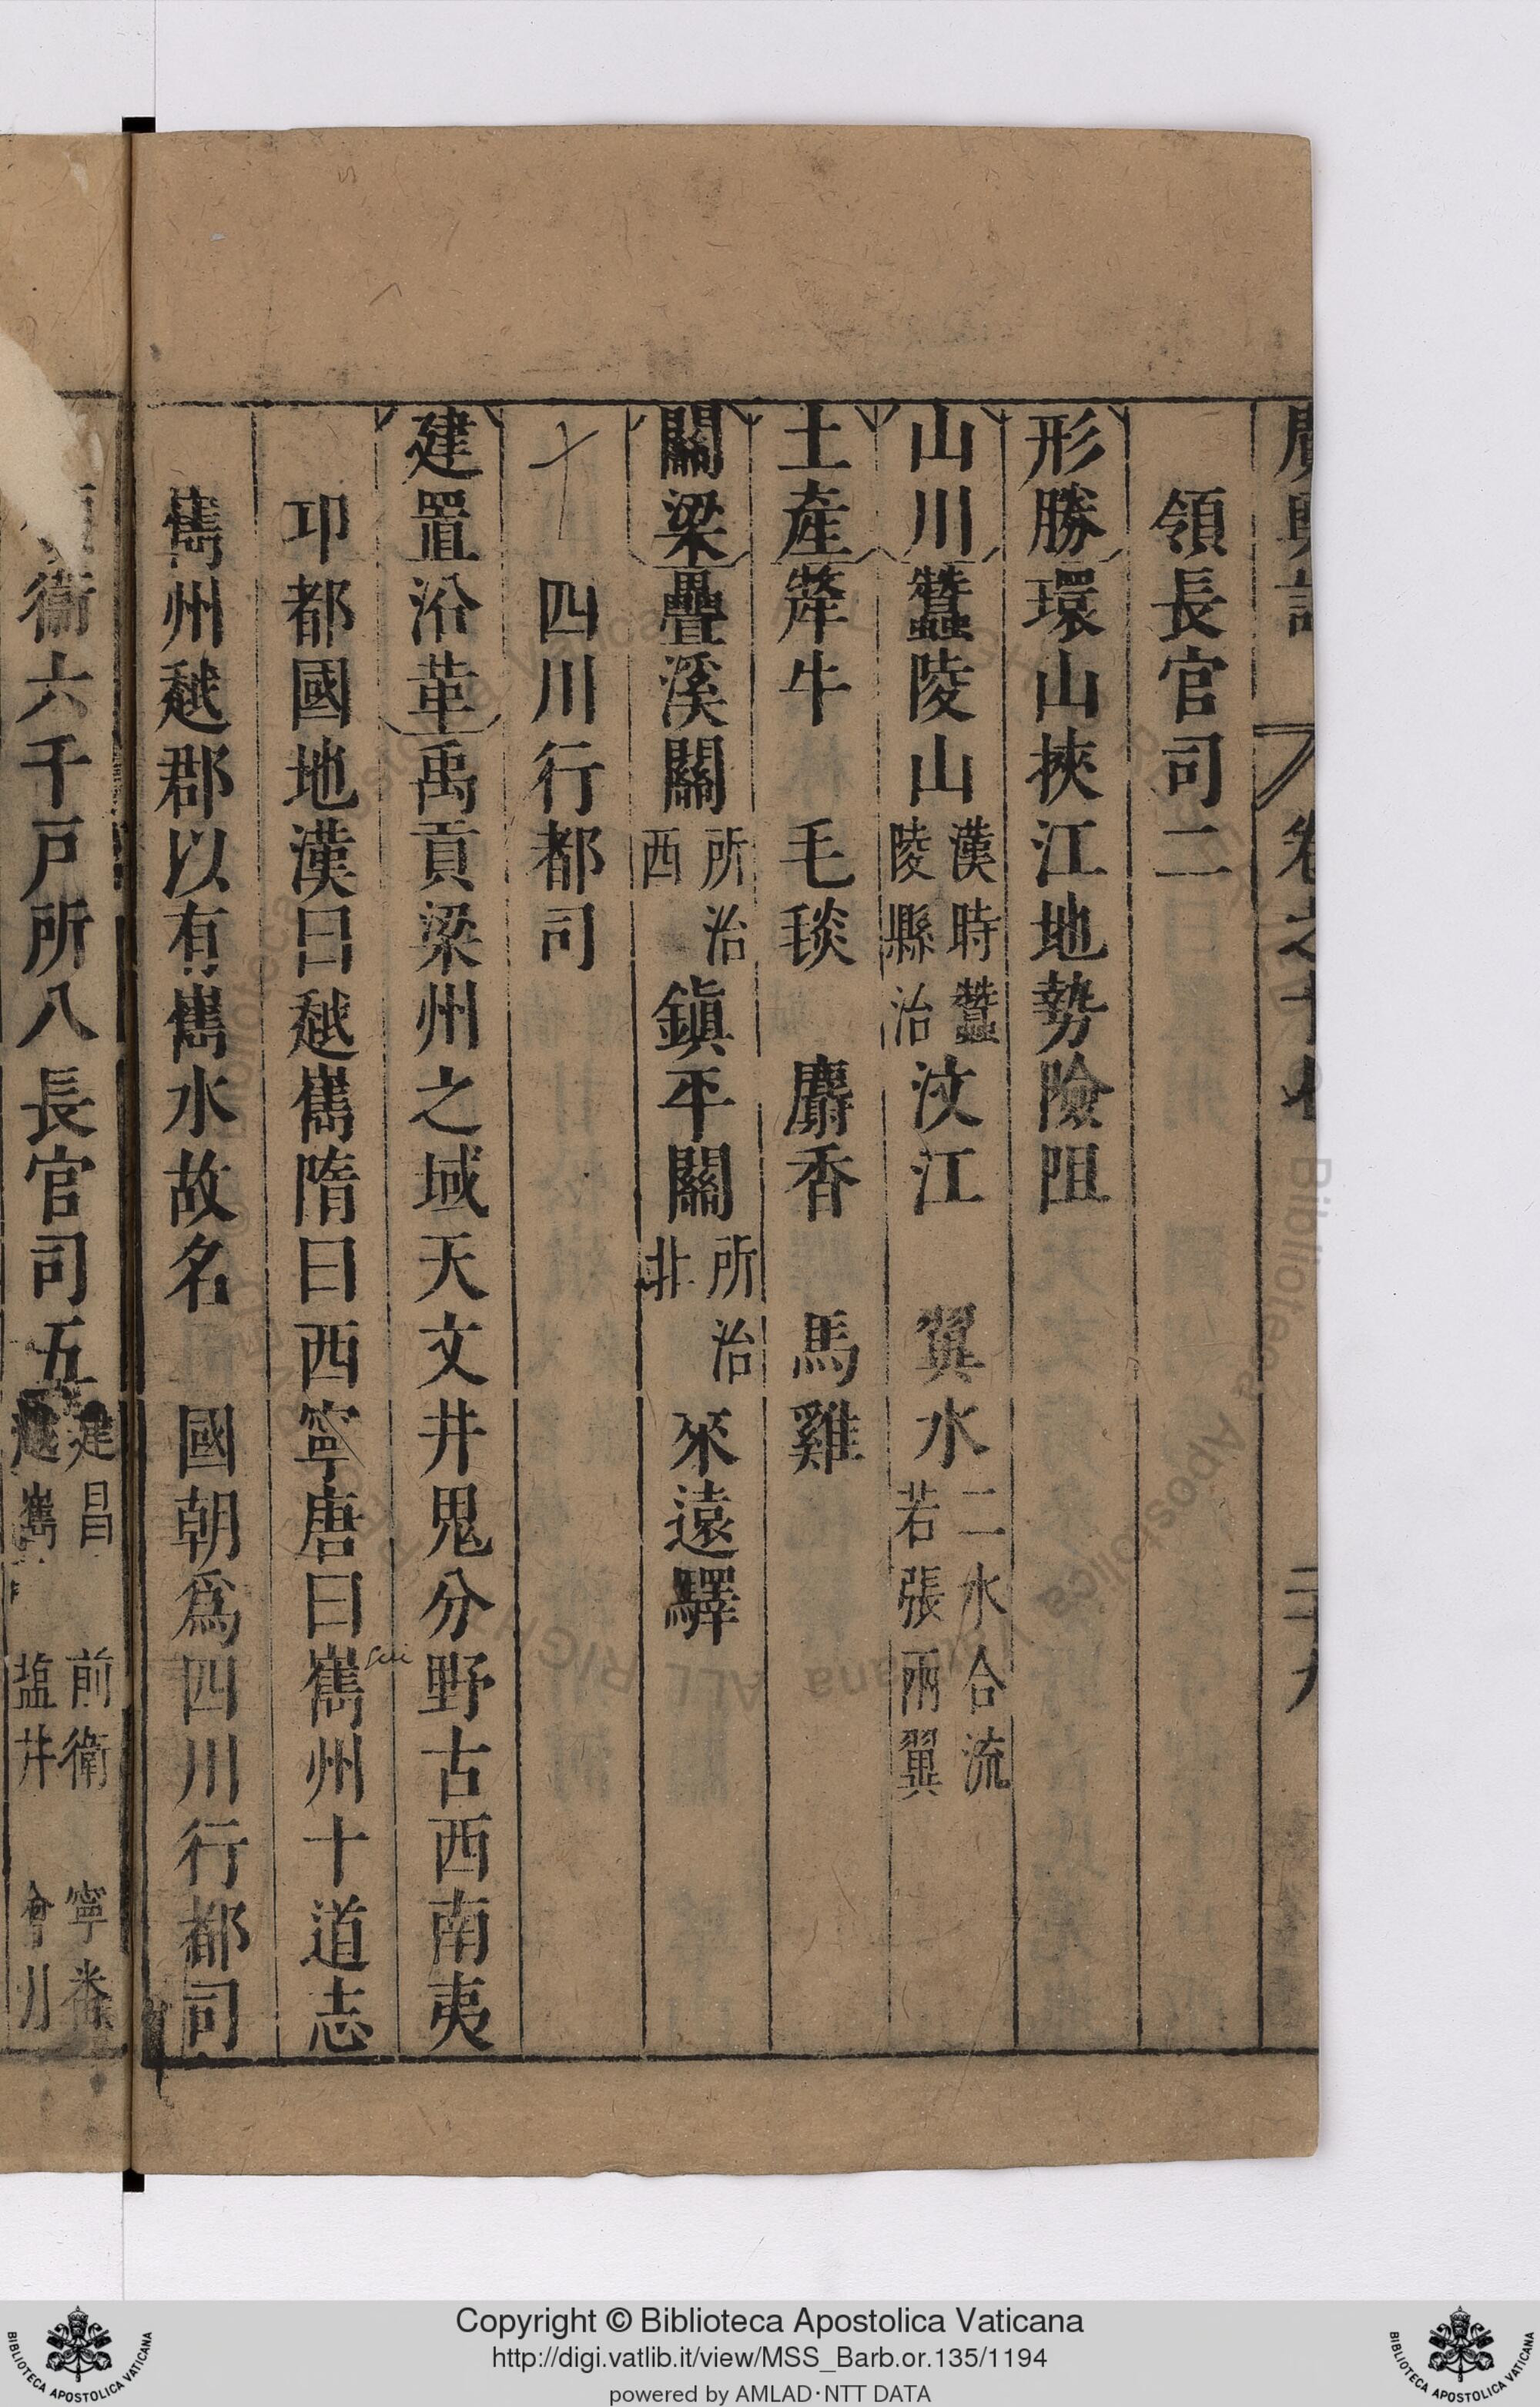 廣輿記 卷之十七 二十九
領長官司二
形勝環山挾江地勢險阻
山川蠶陵山漢時蠶陵縣治汶江 翼水二水合流若張兩翼
土產犛牛 毛毯 麝香 馬雞
關梁疊溪關所治西鎮平關所治北來遠驛
四川行都司
建置沿革禹貢梁州之域天文井鬼分野古西南夷
邛都國地漢曰越嶲隋曰西寧唐曰嶲州十道志
sui
嶲州越郡以有嶲水故名 國朝爲四川行都司
衞六千戸所八長官司五建昌 前衛 寧番越嶲 塩井 會川
Copyright © Biblioteca Apostolica Vaticana
http://digi.vatlib.it/view/MSS_Barb.or.135/1194
powered by AMLAD·NTT DATA
BIBLIOTECA APOSTOLICA VATICANA
BIBLIOTECA APOSTOLICA VATICANA